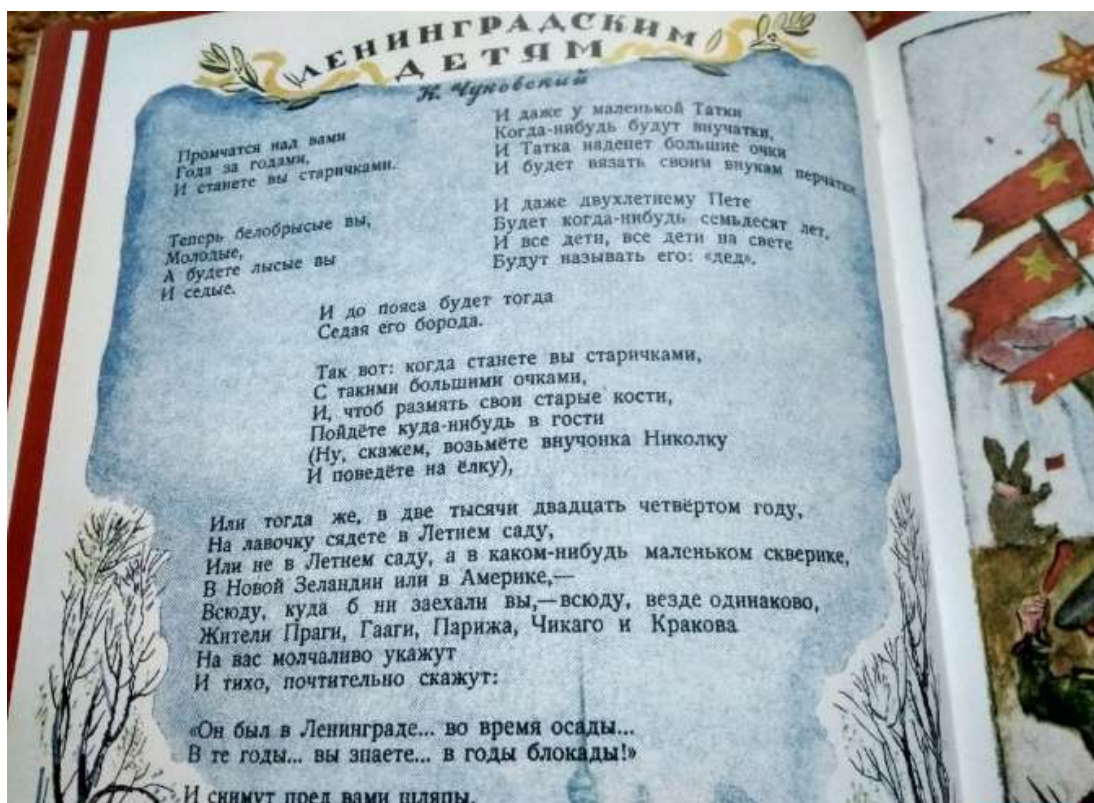 ЛЕНИНГРАДСКИМ
ДЕТЯМ
К. Чуковский
Промчатся над вами
Года за годами,
И станете вы старичками.
Теперь белобрысые вы,
Молодые,
А будете лысые вы
И седые.
И даже у маленькой Татки
Когда-нибудь будут внучатки,
И Татка наденет большие очки
И будет вязать своим внукам перчатки.
И даже двухлетнему Пете
Будет когда-нибудь семьдесят лет,
И все дети, все дети на свете
Будут называть его: «дед».
И до пояса будет тогда
Седая его борода.
Так вот: когда станете вы старичками,
С такими большими очками,
И, чтоб размять свои старые кости,
Пойдёте куда-нибудь в гости
(Ну, скажем, возьмёте внучонка Николку
И поведёте на ёлку),
Или тогда же, в две тысячи двадцать четвёртом году,
На лавочку сядете в Летнем саду,
Или не в Летнем саду, а в каком-нибудь маленьком скверике,
В Новой Зеландии или в Америке,—
Всюду, куда б ни заехали вы,—всюду, везде одинаково,
Жители Праги, Гааги, Парижа, Чикаго и Кракова
На вас молчаливо укажут
И тихо, почтительно скажут:
«Он был в Ленинграде... во время осады...
В те годы... вы знаете... в годы блокады!»
И снимут пред вами шляпы.